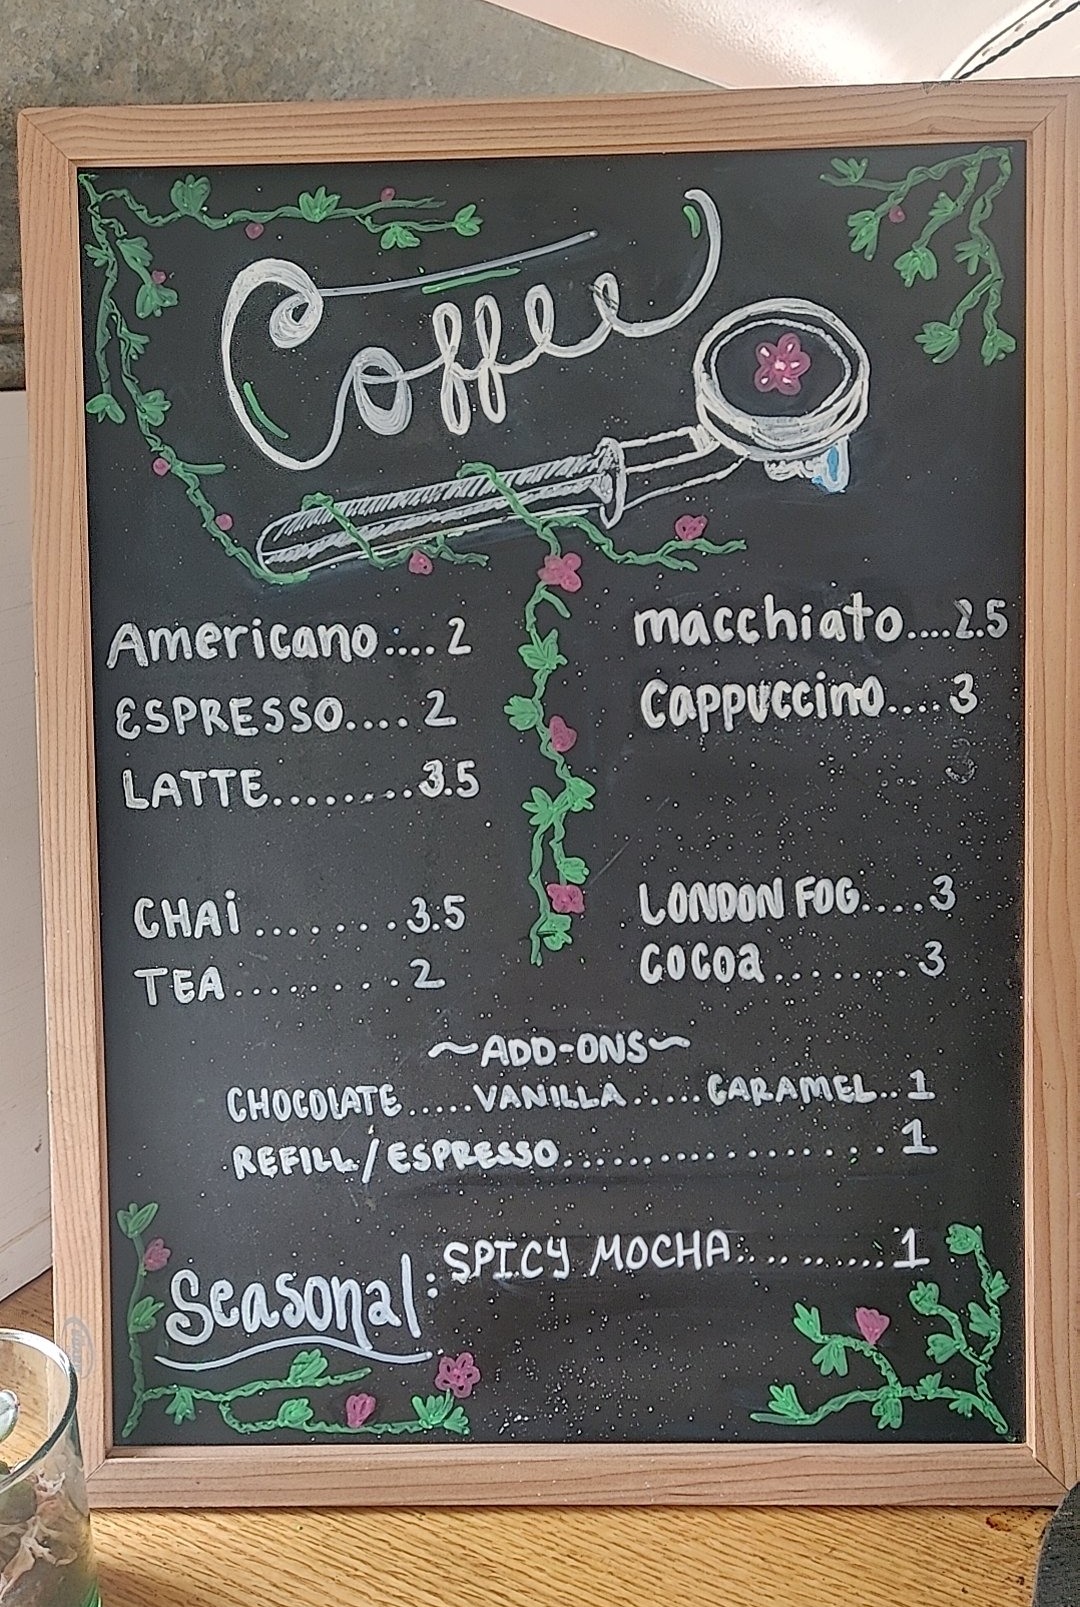 Coffee
Americano....2
ESPRESSO....2
LATTE.........3.5
macchiato....2.5
Cappuccino....3
3
CHAi........3.5
TEA.........2
LONDON FOG....3
COCOa.......3
~ADD-ONS~
CHOCOLATE.....VANILLA.....CARAMEL..1
REFILL/ESPRESSO..................1
Seasonal: SPICY MOCHA..........1